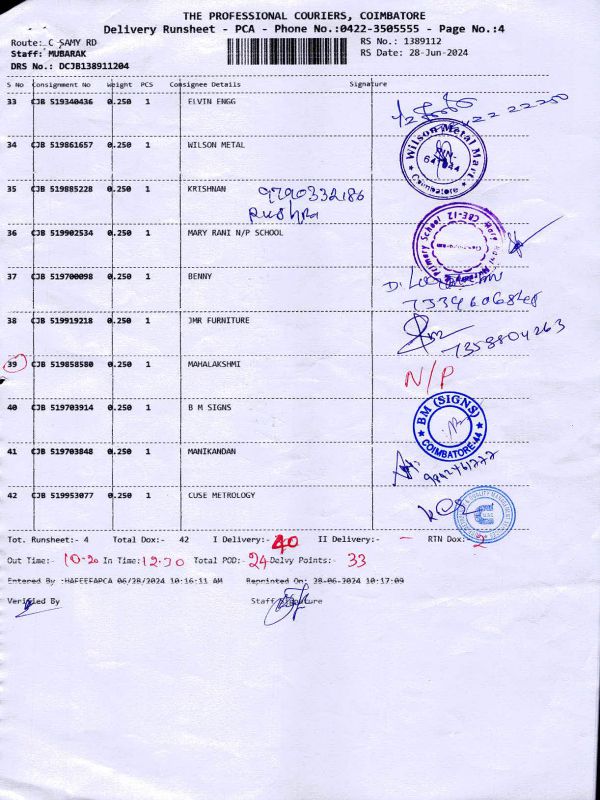 THE PROFESSIONAL COURIERS, COIMBATORE
Delivery Runsheet - PCA - Phone No.:0422-3505555 - Page No.:4
Route: C SAMY RD RS No.: 1389112
Staff: MUBARAK RS Date: 28-Jun-2024
DRS No.: DCJB138911204
S No Consignment No Weight PCS Consignee Details Signature
33 CJB 519340436 0.250 1 ELVIN ENGG
34 CJB 519861657 0.250 1 WILSON METAL
Wilson Metal Mart
Coimbatore
35 CJB 519885228 0.250 1 KRISHNAN 9790332186
Pushpa
36 CJB 519902534 0.250 1 MARY RANI N/P SCHOOL
Primary School
37 CJB 519700098 0.250 1 BENNY
38 CJB 519919218 0.250 1 JMR FURNITURE
7358804263
39 CJB 519858580 0.250 1 MAHALAKSHMI N/P
40 CJB 519703914 0.250 1 B M SIGNS
BM (SIGNS)
COIMBATORE-44
41 CJB 519703848 0.250 1 MANIKANDAN
42 CJB 519953077 0.250 1 CUSE METROLOGY
Tot. Runsheet:- 4 Total Dox:- 42 I Delivery:- 40 II Delivery:- - RTN Dox:- 2
Out Time:- 10-20 In Time:- 12.30 Total POD:- 24 Delvy Points:- 33
Entered By :HAFEEFAPCA 06/28/2024 10:16:11 AM Reprinted On: 28-06-2024 10:17:09
Verified By Staff Signature